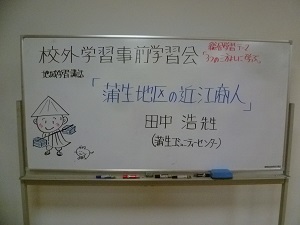 校外学習事前学習会
総合学習テーマ
「3つの二方よしに学ぶ」
地域学習講話
「蒲生地区の近江商人」
田中 浩 先生
(蒲生コミュニティーセンター)